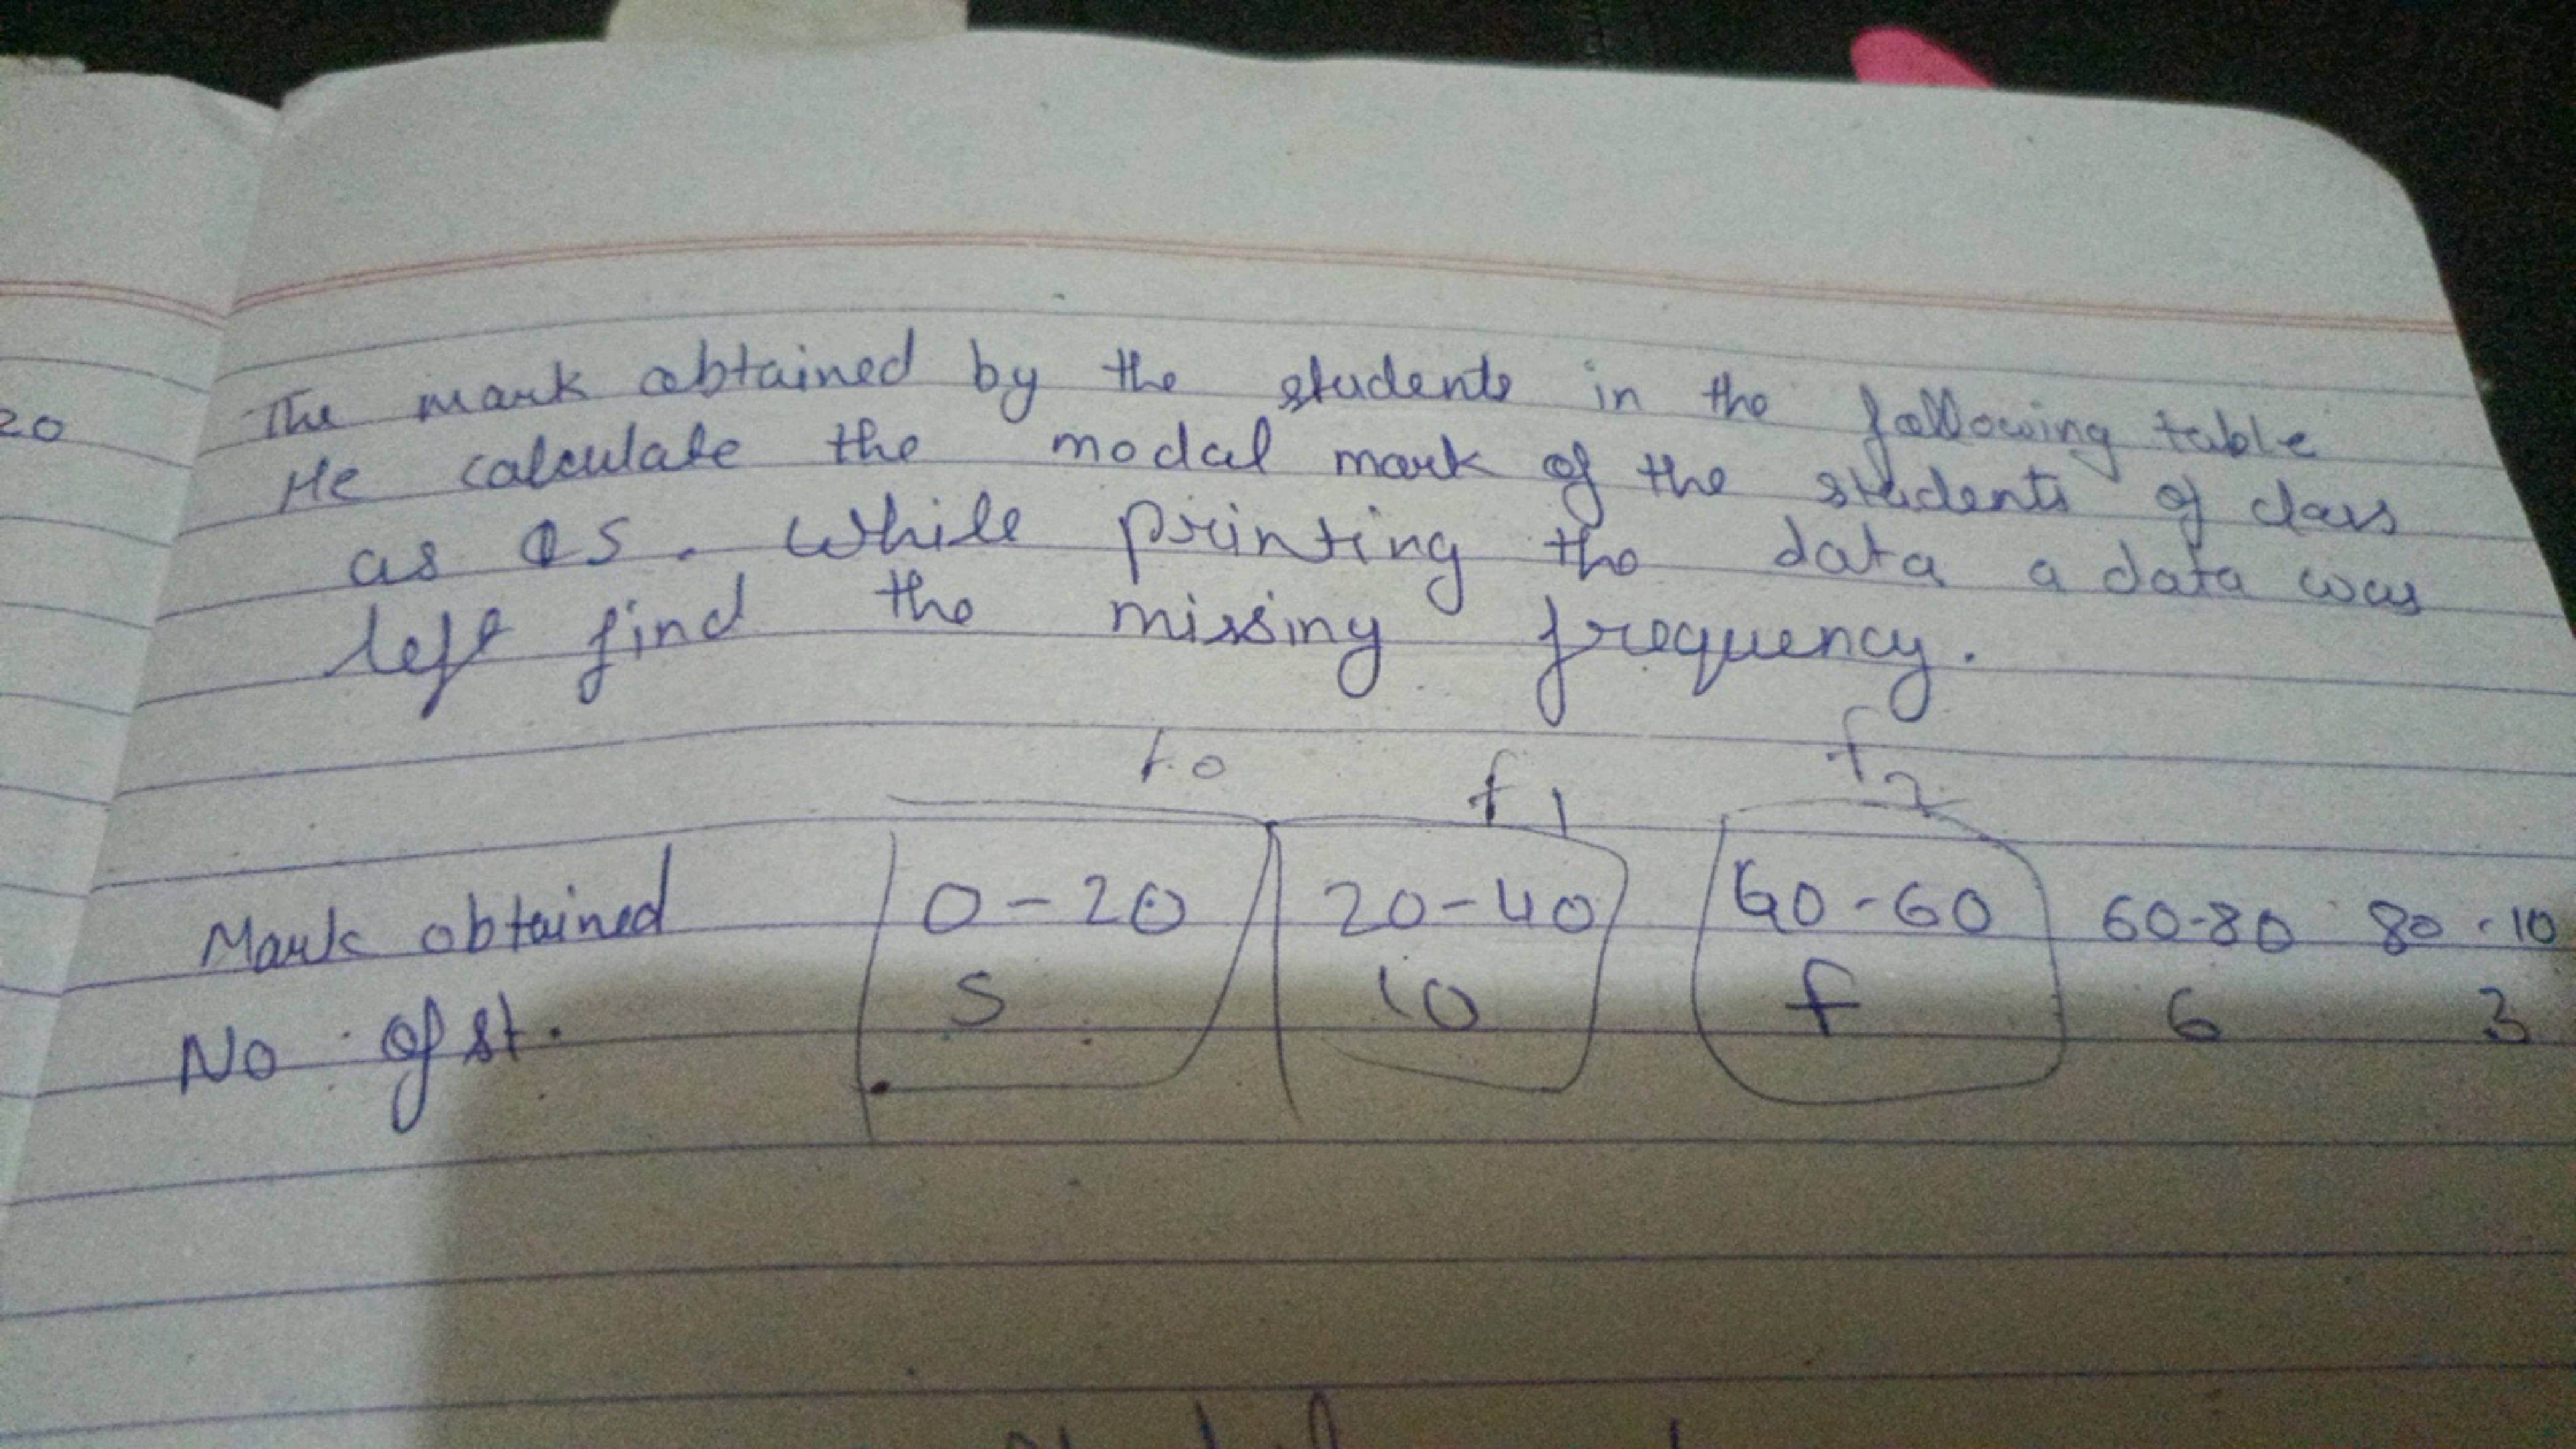 The mark obtained by the students in the following table
20
He calculate the modal mark of the students of class
as . While printing the data a data was
left find the missing frequency.
fo f1 f2
Mark obtained 0-20 20-40 40-60 60-80 80-10
No of st. 5 10 f 6 3